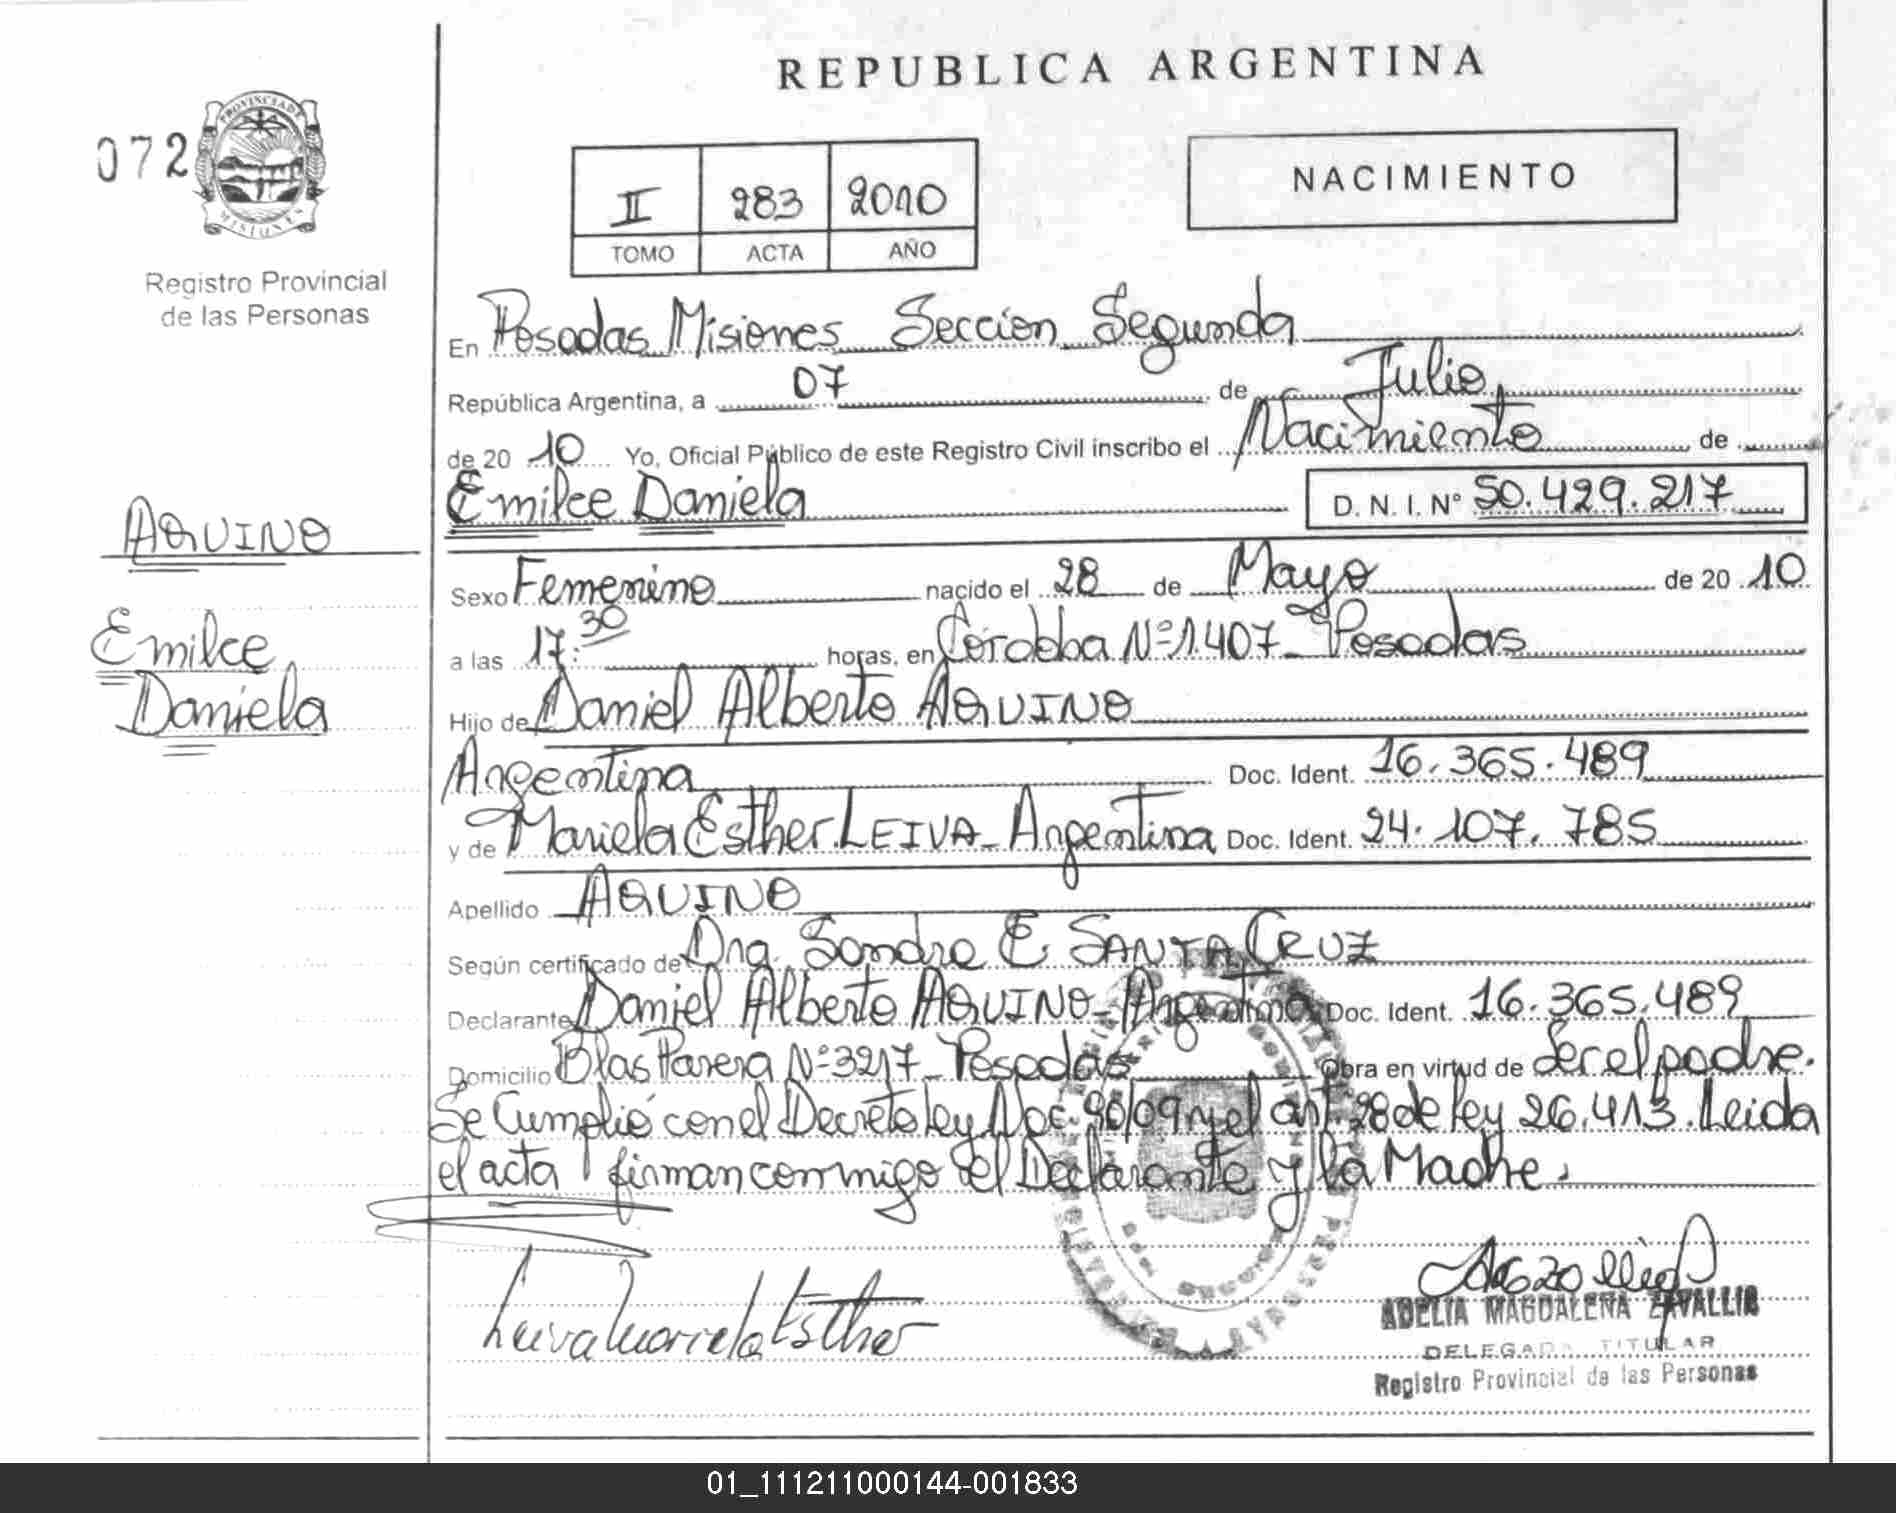 REPUBLICA ARGENTINA
072
PROVINCIA DE
MISIONES
Registro Provincial
de las Personas
II 283 2010
TOMO ACTA AÑO
NACIMIENTO
En Posadas Misiones Sección Segunda
República Argentina, a 07 de Julio
de 20 10 Yo, Oficial Público de este Registro Civil inscribo el Nacimiento de
Emilce Daniela D. N. I. N° 50.429.217
AQUINO
Emilce
Daniela
Sexo Femenino nacido el 28 de Mayo de 20 10
a las 17:30 horas, en Córdoba Nº 1.407 - Posadas
Hijo de Daniel Alberto AQUINO
Argentina Doc. Ident. 16.365.489
y de Mariela Esther LEIVA - Argentina Doc. Ident. 24.107.785
Apellido AQUINO
Según certificado de Dra. Sandra E. SANTA CRUZ
Declarante Daniel Alberto AQUINO - Argentina Doc. Ident. 16.365.489
Domicilio Blas Parera Nº 3217 - Posadas Obra en virtud de ser el padre.
Se Cumplió con el Decreto ley Nac. 90/09 y el art. 28 de ley 26.413. Leida
el acta firman conmigo el Declarante y la Madre.
Leiva Mariela Esther
ADELIA MAGDALENA ZAVALLIA
DELEGADA TITULAR
Registro Provincial de las Personas
01_111211000144-001833